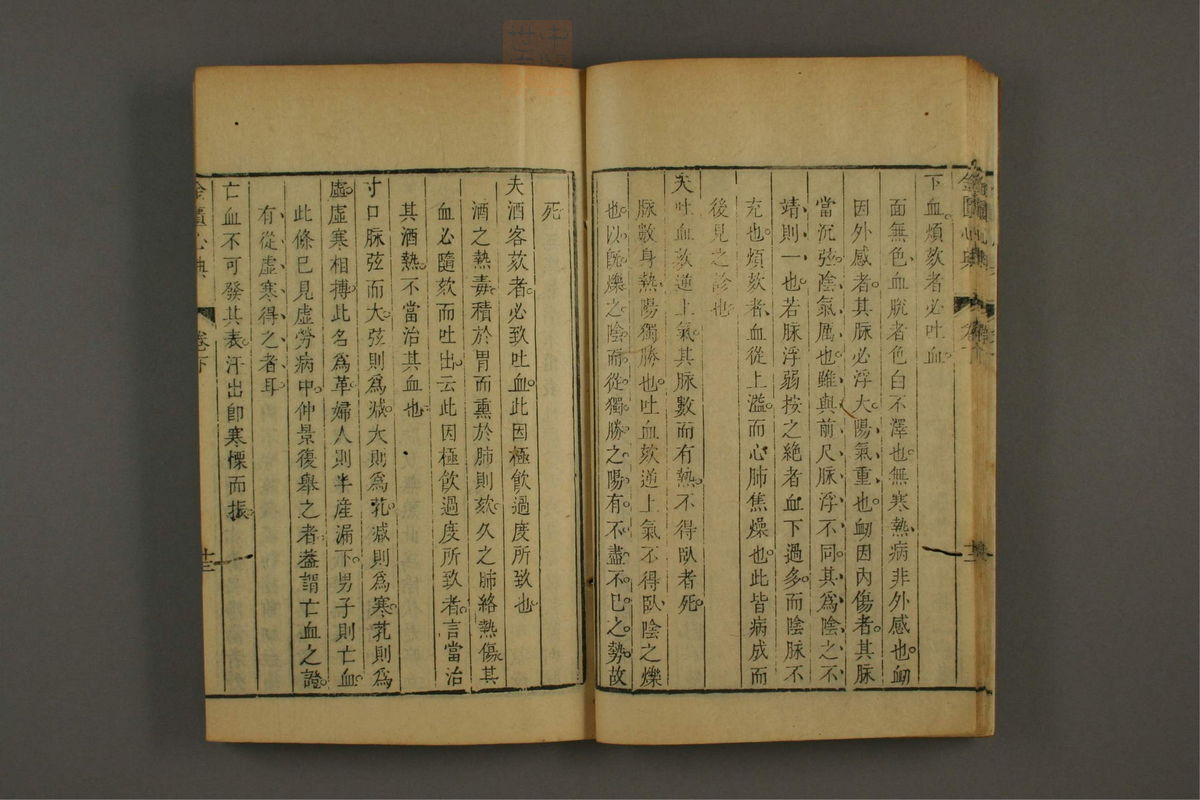 下血。煩欬者必吐血。
面無色血脫者色白不澤也。無寒熱病非外感也。衂
因外感者。其脉必浮大。陽氣重也。衂因內傷者。其脉
當沉弦。陰氣厲也。雖與前尺脉浮不同。其為陰之不
靖則一也。若脉浮弱按之絕者。血下過多。而陰脉不
充也。煩欬者。血從上溢。而心肺焦燥也。此皆病成而
後見之診也
夫吐血欬逆上氣。其脉數而有熱。不得臥者死。
脉數身熱。陽獨勝也。吐血欬逆上氣不得臥。陰之爍
也。以旣爍之陰。而從獨勝之陽。有不盡不已之勢。故
死
夫酒客欬者。必致吐血。此因極飲過度所致也。
酒之熱毒。積於胃而熏於肺則欬。久之肺絡熱傷。其
血必隨欬而吐出。云此因極飲過度所致者。言當治
其酒熱。不當治其血也
寸口脉弦而大。弦則為減。大則為芤。減則為寒。芤則為
虛。虛寒相搏。此名為革。婦人則半產漏下。男子則亡血。
此條已見虛勞病中。仲景復舉之者。葢謂亡血之證。
有從虛寒得之者耳
亡血不可發其表。汗出卽寒慄而振。
金匱心典
卷下